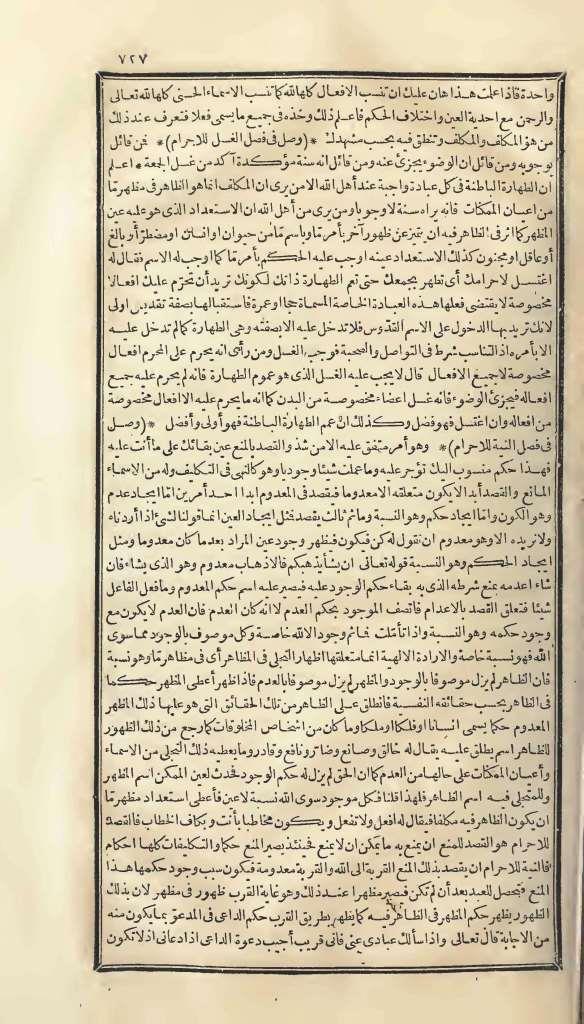 ٧٢٧
واحدة فاذا علمت هذا هان عليك ان تنسب الافعال كلها لله كما تنسب الاسماء الحسنى كلها لله تعالى
والرحمن مع احدية العين واختلاف الحكم فاعلم ذلك وخذه في جميع ما يسمى فعلا فتعرف عند ذلك
من هو المكلف والمكلف وتنطق فيه بحسب مشهدك * (وصل في فصل الغسل للاحرام) * فمن قائل
بوجوبه ومن قائل ان الوضوء يجزئ عنه ومن قائل انه سنة مؤكدة آكد من غسل الجمعة * اعلم
ان الطهارة الباطنة في كل عبادة واجبة عند أهل الله الا من يرى ان المكلف انما هو الظاهر في مظهر ما
من اعيان الممكنات فانه يراه سنة لا وجوبا ومن يرى من أهل الله ان الاستعداد الذي هو عليه عين
المظهر كما اثر في الظاهر فيه ان يتميز عن ظهور آخر بأمر ما وباسم ما من حيوان او انسان او مضطر أو بالغ
أو عاقل او مجنون كذلك الاستعداد عينه اوجب عليه الحكم بأمر ما كما اوجب له الاسم فقال له
اغتسل لاحرامك أى تطهر بجمعك حتى تعم الطهارة ذاتك لكونك تريد أن تحرم عليك افعالا
مخصوصة لا يقتضى فعلها هذه العبادة الخاصة المسماة حجا او عمرة فاستقبالها بصفة تقديس اولى
لانك تريد بها الدخول على الاسم القدوس فلا تدخل عليه الا بصفته وهي الطهارة كما لم تدخل عليه
الا بأمره اذ التناسب شرط في التواصل والصحبة فوجب الغسل ومن رأى انه يحرم على المحرم افعال
مخصوصة لا جميع الافعال قال لا يجب عليه الغسل الذى هو عموم الطهارة فانه لم يحرم عليه جميع
افعاله فيجزئ الوضوء فانه غسل اعضاء مخصوصة من البدن كما انه ما يحرم عليه الا افعال مخصوصة
من افعاله وان اغتسل فهو فضل وكذلك ان عمم الطهارة الباطنة فهو أولى وأفضل * (وصل
في فصل النية للاحرام) * وهو أمر متفق عليه الا من شذ والقصد بالمنع عين بقائك على ما أنت عليه
فهذا حكم منسوب اليك تؤجر عليه وما عملت شيئا وجوديا وهو كالنهى في التكليف وله من الاسماء
المانع والقصد أبدا لا يكون متعلقه الا معدوما فيقصد في المعدوم ابدا احد أمرين اما ايجاد عدم
وهو الكون واما ايجاد حكم وهو النسبة وما ثم ثالث يقصد فمثل ايجاد العين انما قولنا لشئ اذا أردناه
ولا نريده الا وهو معدوم ان نقول له كن فيكون فيظهر وجود عين المراد بعد ما كان معدوما ومثل
ايجاد الحكم وهو النسبة قوله تعالى ان يشأ يذهبكم فالاذهاب معدوم وهو الذى يشاء فان
شاء اعدمه بمنع شرطه الذى به بقاء حكم الوجود عليه فيصير عليه اسم حكم المعدوم وما فعل الفاعل
شيئا فتعلق القصد بالاعدام فاتصف الموجود بحكم العدم لا انه كان العدم فان العدم لا يكون مع
وجود حكمه وهو النسبة واذا تأملت فما ثم وجود الا الله خاصة وكل موصوف بالوجود مما سوى
الله فهو نسبة خاصة والارادة الالهية انما متعلقها اظهار التجلى في المظاهر أى في مظاهر ما وهو نسبة
فان الظاهر لم يزل موصوفا بالوجود والمظهر لم يزل موصوفا بالعدم فاذا ظهر أعطى المظهر حكما
في الظاهر بحسب حقائقه النفسية فانطلق على الظاهر من تلك الحقائق التى هو عليها ذلك المظهر
المعدوم حكما يسمى انسانا او فلكا او ملكا وما كان من اشخاص المخلوقات كما رجع من ذلك الظهور
للظاهر اسم يطلق عليه يقال له خالق وصانع وضار ونافع وقادر وما يعطيه ذلك التجلى من الاسماء
وأعيان الممكنات على حالها من العدم كما ان الحق لم يزل له حكم الوجود فحدث لعين الممكن اسم المظهر
وللمتجلى فيه اسم الظاهر فلهذا قلنا فكل موجود سوى الله نسبة لا عين فأعطى استعداد مظهر ما
ان يكون الظاهر فيه مكلفا فيقال له افعل ولا تفعل ويكون مخاطبا بأنت وبكاف الخطاب فالقصد
للاحرام هو القصد للمنع ان يمنع به ما يمكن ان لا يمنع فحينئذ يصير المنع حكما والتكليفات كلها احكام
فالنية للاحرام ان يقصد بذلك المنع القربة الى الله والقربة معدومة فيكون سبب وجود حكمها هذا
المنع فيحصل للعبد بعد أن لم تكن فيصير مظهرا عند ذلك وهو غاية القرب ظهور في مظهر لان بذلك
الظهور يظهر حكم المظهر في الظاهر فيه كما يظهر بطريق القرب حكم الداعى في المدعو بما يكون منه
من الاجابة قال تعالى واذا سألك عبادى عنى فانى قريب أجيب دعوة الداعى اذا دعانى اذ لا تكون